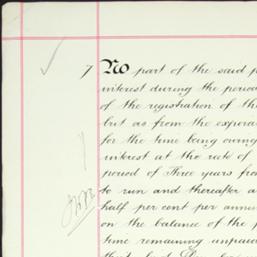 7 No part of the said
interest during the period
of the registration of
but as from the
for the time being owing
interest at the rate of
period of Three years
to run and thereafter
half per cent per
on the balance of the
time remaining